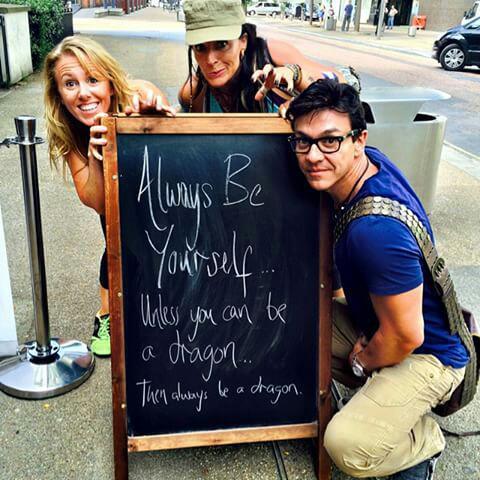 Always Be
Yourself...
Unless you can be
a dragon...
Then always be a dragon.